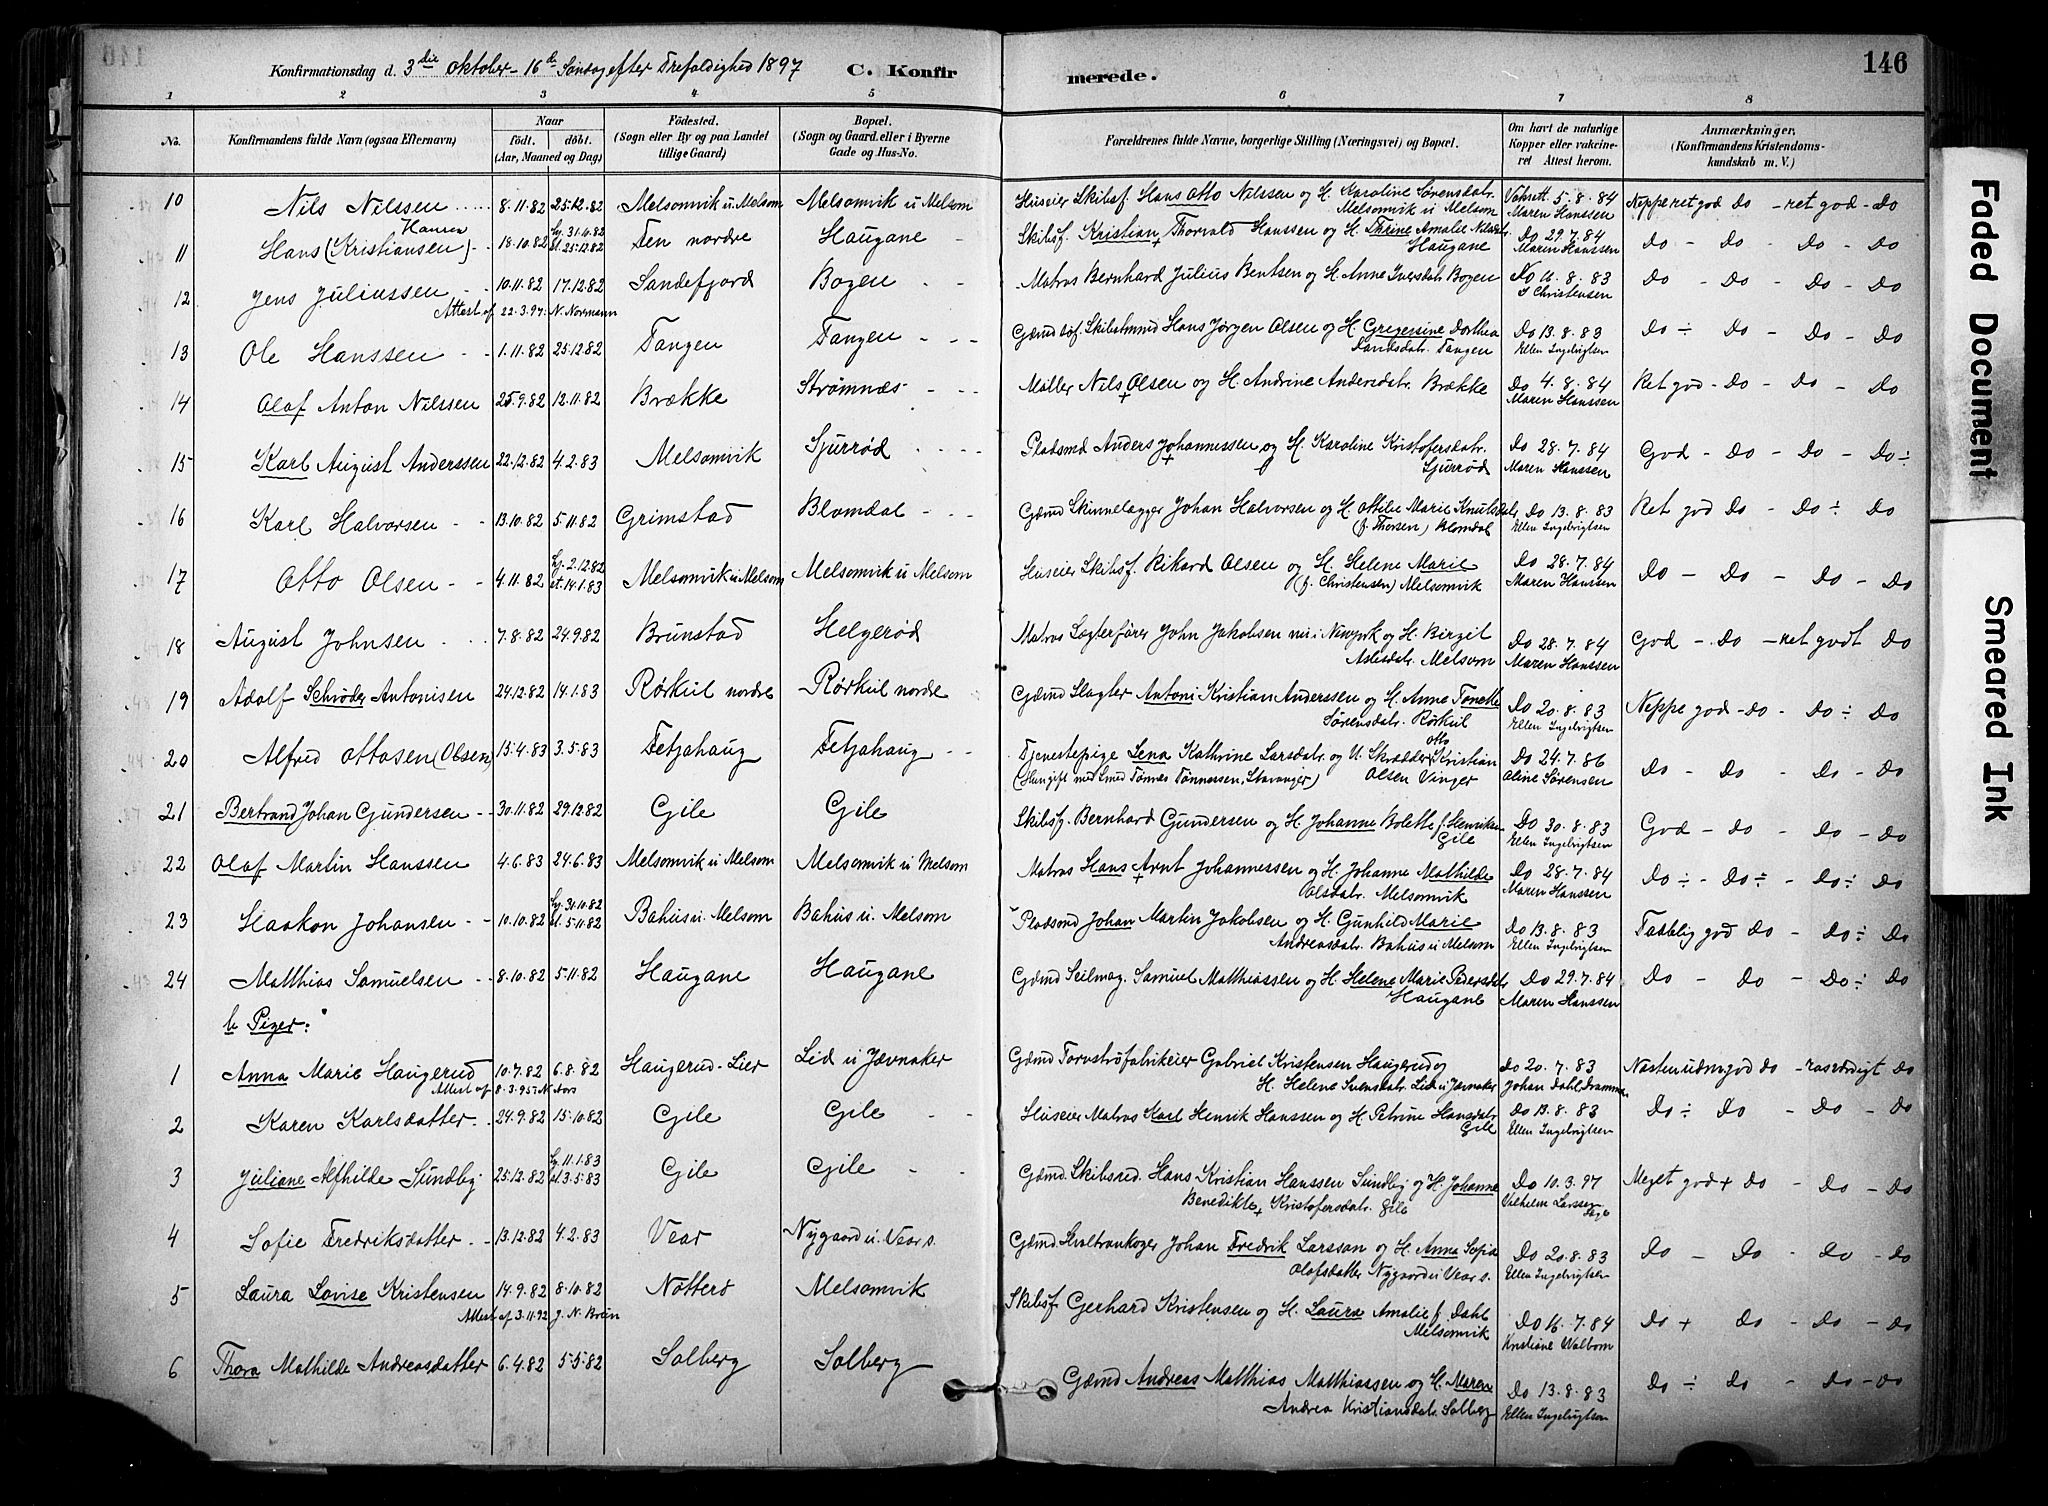 146
Konfirmationsdag d. 3die oktober - 16de Søndag efter Trefoldighed 1897 C. Konfirmerede.
1 2 3 4 5 6 7 8
No. Konfirmandens fulde Navn (ogsaa Efternavn) Naar født. døbt. (Aar, Maaned og Dag) Fødested. (Sogn eller By og paa Landet tillige Gaard) Bopæl. (Sogn og Gaard, eller i Byerne Gade og Hus-No. Forældrenes fulde Navne, borgerlige Stilling (Næringsvei) og Bopæl. Om havt de naturlige Kopper eller vaccineret Attest herom. Anmærkninger, (Konfirmandens Kristendomskundskab m. V.)
10 Nils Nilssen 8.11.82 25.12.82 Melsomvik u. Melsom Melsomvik u Melsom Huseier Skibsf. Hans Otto Nilssen og H. Karoline Sørensdatr. Melsomvik u Melsom 5.8.84 Maren Hanssen Neppe ret god Do - ret god - Do
11 Hans (Kristiansen) Hansen 18.10.82 Hj. 31.10.82 st. 25.12.82 Den nordre Haugane Skibsf. Kristian Thorvald Hanssen og H. Thrine Amalie Nilsdatr. Haugane Do 29.7.84 Maren Hanssen Do - Do - Do - Do
12 Jens Juliussen 10.11.82 17.12.82 Sandefjord Bogen Matros Bernhard Julius Bentsen og H. Anne Iversdatr. Bogen Do 16.8.83 J Christensen Do - Do - Do - Do
Attest af 22.3.97. N. Normann
13 Ole Hanssen 1.11.82 25.12.82 Tangen Tangen Gæmd Skibstmmd Hans Jørgen Olsen og H. Gregersine Dorthea Tangen Do 13.8.83 Ellen Ingebrigtsen Do ÷ Do - Do - Do
14 Olaf Anton Nilssen 25.9.82 12.11.82 Brække Strømnæs Møller Nils Olsen og H. Andrine Andersdatr. Brække Do 4.8.84 Maren Hanssen Ret god - Do - Do - Do
15 Karl August Anderssen 22.12.82 4.2.83 Melsomvik Sjurrød Pladsmd Anders Johannessen og H. Karoline Kristofersdatr. Sjurrød Do 28.7.84 Maren Hanssen God - Do - Do - Do ÷
16 Karl Halvorsen 13.10.82 5.11.82 Grimstad Blomdal Gæmd Skinnelægger Johan Halvorsen og H. Ottilie Marie Knutsdatr. (f. Thorsen) Blomdal Do 13.8.83 Ellen Ingebrigtsen Ret god Do - Do ÷ Do
17 Otto Olsen 4.11.82 Hj. 2.12.82 st. 14.1.83 Melsomvik u. Melsom Melsomvik u Melsom Huseier Skibsf. Rikard Olsen og H. Helene Marie (f. Christensen) Melsomvik Do 28.7.84 Maren Hanssen Do - Do - Do - Do
18 August Johnsen 7.8.82 24.9.82 Brunstad Helgerød Matros Lægterfører John Jakobsen nu i Newyork og H. Birgit Aslesdatr. Melsom Do 28.7.84 Maren Hanssen God - Do - ret godt Do
19 Adolf Schrøder Antonisen 24.12.82 14.1.83 Rørkul nordre Rørkul nordre Gæmd Slagter Antoni Kristian Anderssen og H. Anne Tonette Sørensdatr. Rørkul Do 20.8.83 Ellen Ingebrigtsen Neppe god - Do - Do ÷ Do
20 Alfred Ottosen (Olsen) 15.4.83 3.5.83 Fetjahaug Fetjahaug Tjenestepige Lena Kathrine Larsdatr. og U. Skrædder Otto Kristian Olsen Vinger (Hun gift med Smed Tønnes Tønnessen, Stavanger) Do 24.7.86 Oline Sørensen Do - Do - Do - Do
21 Bertrand Johan Gundersen 30.11.82 29.12.82 Gile Gile Skibsf. Bernhard Gundersen og H. Johanne Bolette f. Henriksen Gile Do 30.8.83 Ellen Ingebrigtsen God - Do - Do - Do
22 Olaf Martin Hanssen 4.6.83 24.6.83 Melsomvik u Melsom Melsomvik u Melsom Matros Hans Arnt Johannessen og H. Johanne Mathilde Olsdatr. Melsomvik Do 28.7.84 Maren Hanssen Do ÷ - Do ÷ - Do ÷ Do
23 Haakon Johansen 10.10.82 Hj. 31.10.82 st. 5.11.82 Bahus u. Melsom Bahus u. Melsom Pladsmd Johan Martin Jakobsen og H. Gunhild Marie Andreasdatr. Bahus u Melsom Do 13.8.83 Ellen Ingebrigtsen Taalelig god Do - Do ÷ Do
24 Matthias Samuelsen 8.10.82 5.11.82 Haugane Haugane Gæmd Seilmag. Samuel Matthiassen og H. Helene Marie Pedersdatr. Haugane Do 29.7.84 Maren Hanssen Do - Do - Do ÷ Do
b Piger:
1 Anna Marie Haugerud 10.7.82 6.8.82 Haugerud - Lier Lid u Jævnaker Gæmd Torvstrøfabrikeier Gabriel Kristensen Haugerud og H. Helene Svensdatr. Lid u Jævnaker Do 20.7.83 Johan Dahl, Drammen Næsten udm. god do - rosværdigt Do
Attest af 8.3.95
2 Karen Karlsdatter 24.9.82 15.10.82 Gile Gile Huseier Matros Karl Henrik Hanssen og H. Petrine Hansdatr. Gile Do 13.8.83 Ellen Ingebrigtsen Do ÷ Do - Do - Do
3 Juliane Alfhilde Sundby 25.12.82 Hj. 11.1.83 st. 3.5.83 Gile Gile Gæmd. Skibsred. Hans Kristian Hanssen Sundby og H. Johanne Benedikte Kristofersdatr. Gile Do 10.3.97 Vilhelm Larssen Meget god + Do - Do - Do
4 Sofie Fredriksdatter 13.12.82 4.2.83 Vear Nygaard u. Vear s. Gæmd. Hvaltrankoger Johan Fredrik Larsson og H. Anna Sofia Olofsdatter Nygaard u Vear s. Do 20.8.83 Ellen Ingebrigtsen Do - Do - Do - Do
5 Laura Lovise Kristensen 14.9.82 8.10.82 Nøtterø Melsomvik Skibsf. Gerhard Kristensen og H. Laura Amalie f. Dahl Melsomvik Do 16.7.84 Kristiane Walbom Do + Do - Do - Do
Attest af 3.11.92 J. N. Bruun
6 Thora Mathilde Andreasdatter 6.4.82 5.5.82 Solberg Solberg Gæmd Andreas Matthias Matthiassen og H. Maren Andrea Kristiansdatr. Solberg Do 13.8.83 Ellen Ingebrigtsen Do ÷ Do - Do - Do
Faded Document
Smeared Ink